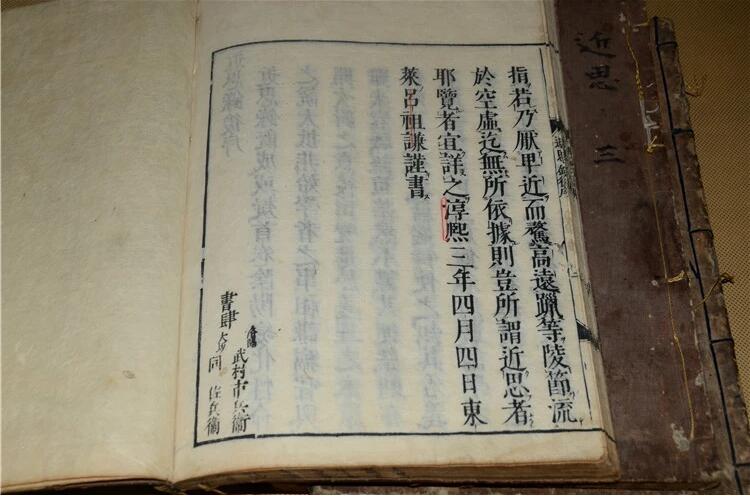 指若乃厭甲近而驁高遠躐等陵節流
於空虛迄無所依據則豈所謂近思者
耶覽者宜詳之淳熙三年四月四日東
萊呂祖謙謹書
書肆
武村市兵衛
同 佐兵衛
近思 三